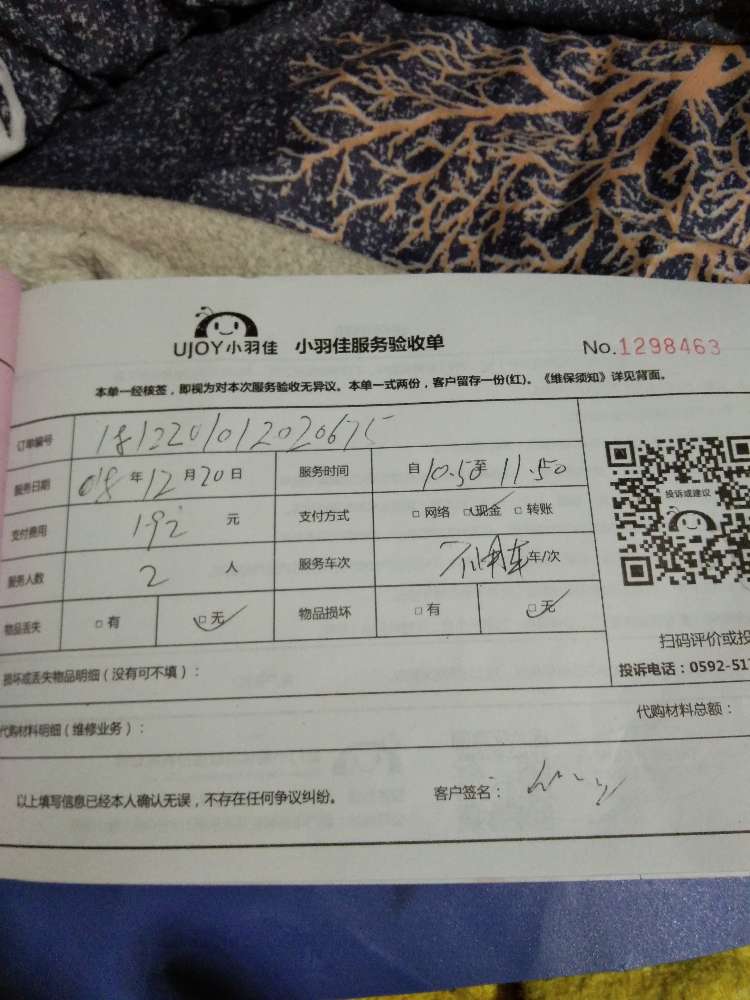 UJOY小羽佳 小羽佳服务验收单 No.1298463
本单一经核签，即视为对本次服务验收无异议。本单一式两份，客户留存一份(红)。《维保须知》详见背面。
订单编号 1812201012020675
服务日期 018年12月20日 服务时间 自10.50至11.50
支付费用 192元 支付方式 □网络 □现金 □转账
服务人数 2人 服务车次 不用车车/次
物品丢失 □有 □无 物品损坏 □有 □无
投诉或建议
扫码评价或投
投诉电话：0592-517
损坏或丢失物品明细（没有可不填）：
代购材料明细（维修业务）： 代购材料总额：
以上填写信息已经本人确认无误，不存在任何争议纠纷。 客户签名：